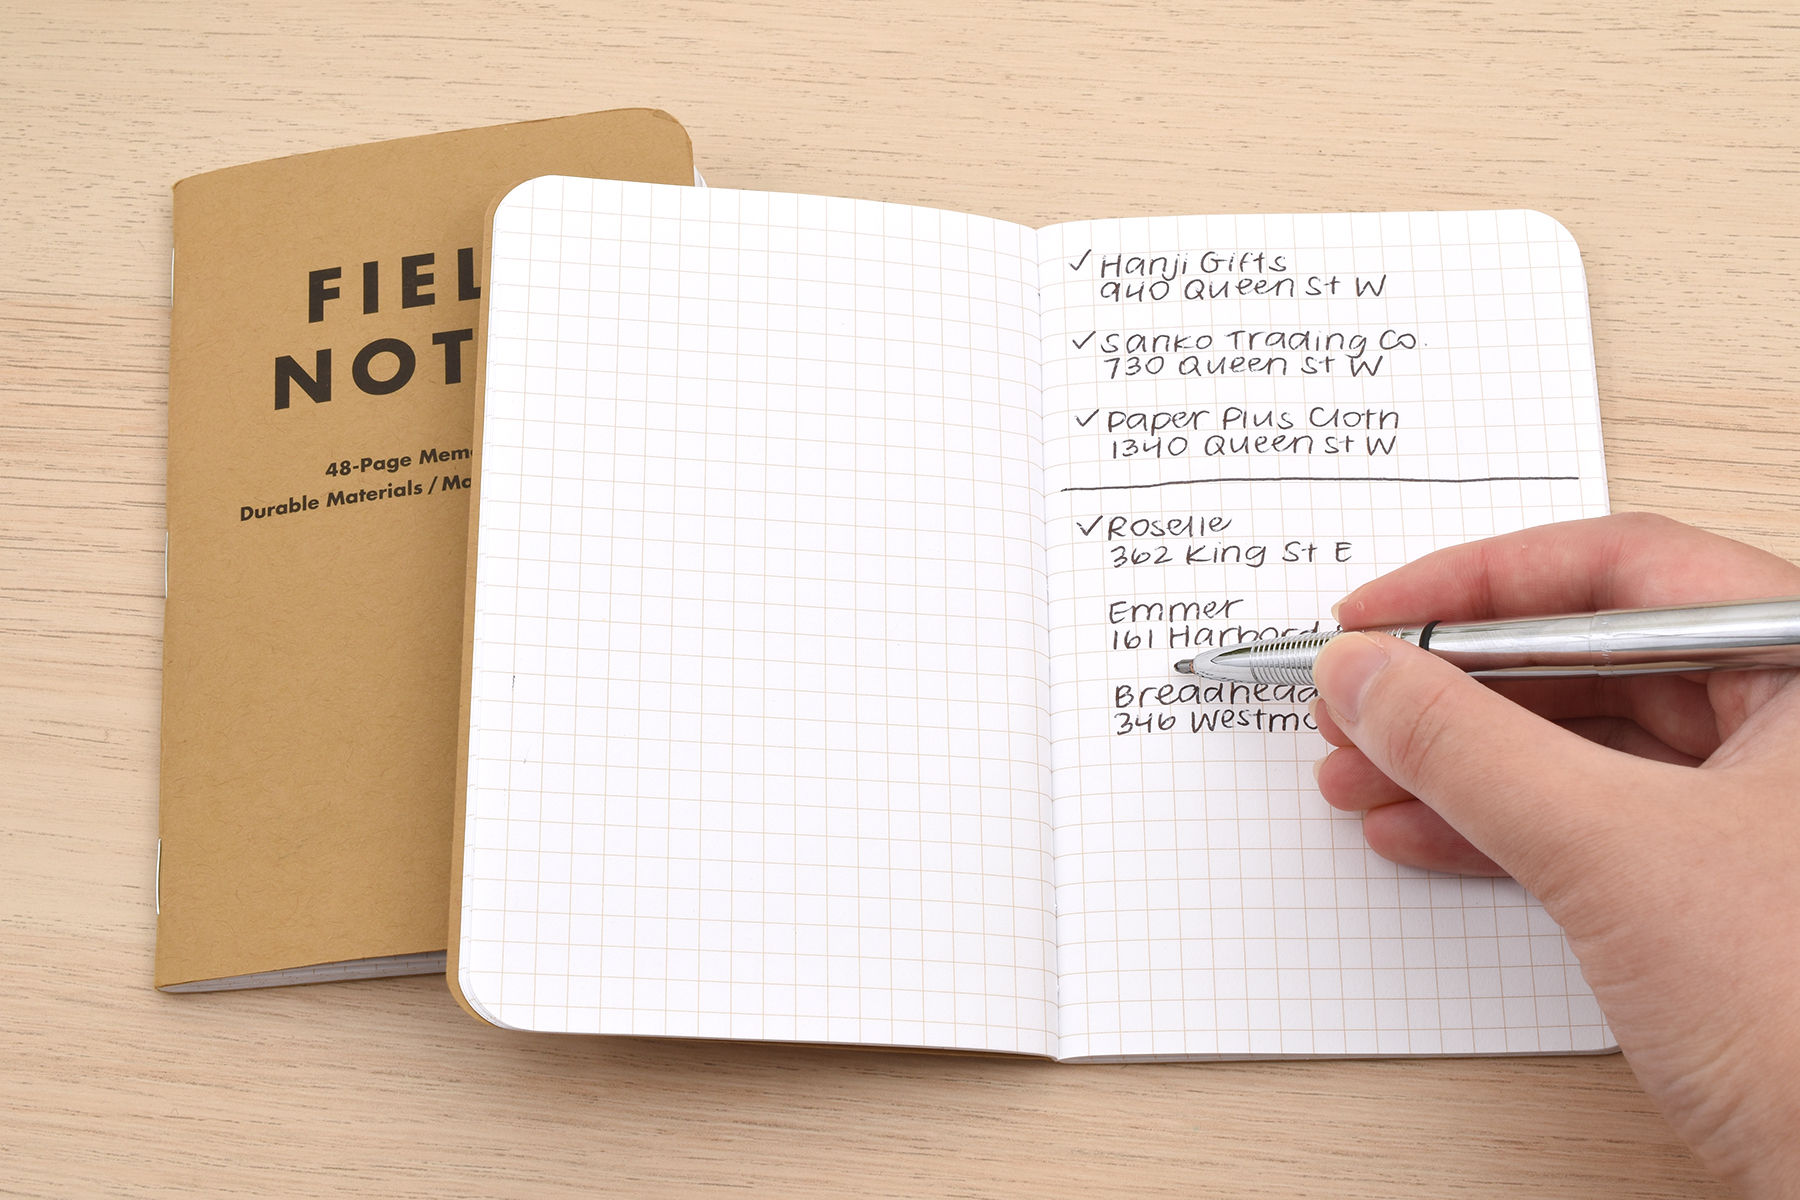 FIEL
NOT
48-Page Memo
Durable Materials / Ma
✓ Hanji Gifts
940 Queen St W
✓ Sanko Trading Co.
730 Queen St W
✓ Paper Plus Cloth
1340 Queen St W
✓ Roselle
362 King St E
Emmer
161 Harbord
Breadhead
346 Westmo